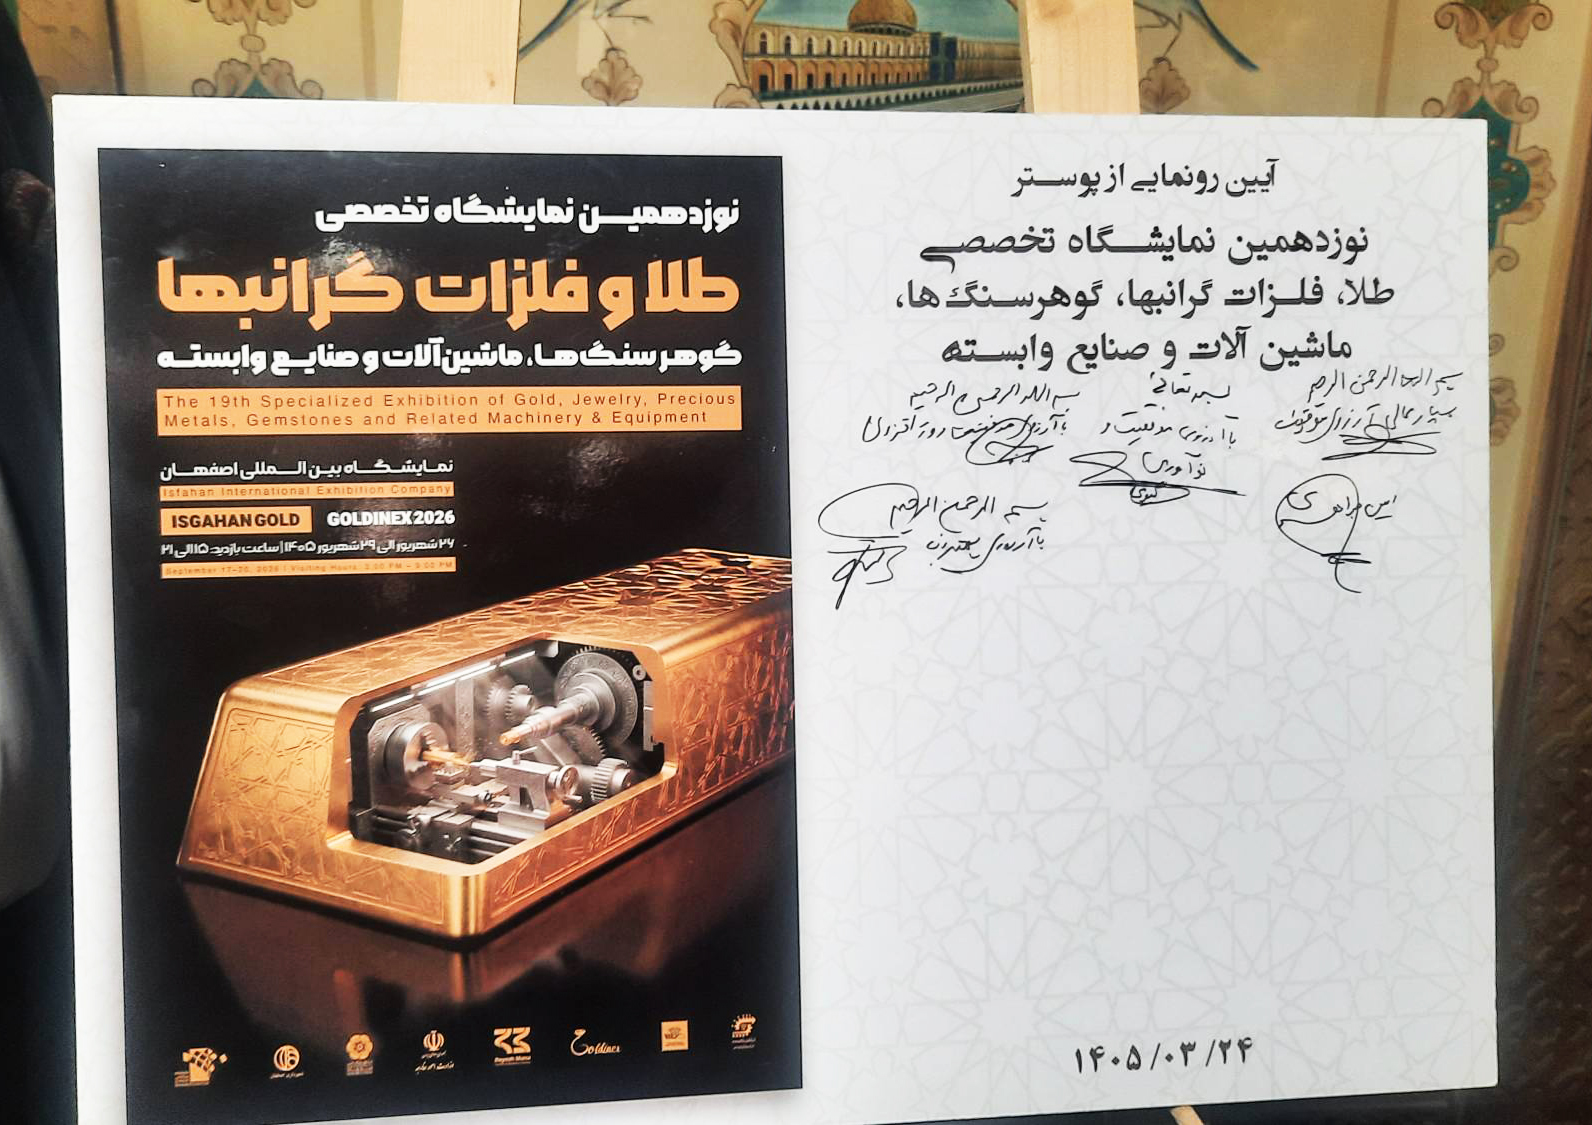 آیین رونمایی از پوستر
نوزدهمین نمایشگاه تخصصی
طلا، فلزات گرانبها، گوهرسنگ‌ها،
ماشین آلات و صنایع وابسته
بسم الله الرحمن الرحیم
آرزوی موفقیت
بسمه تعالی
با آرزوی موفقیت و
نوآوری
بسم الله الرحمن الرحیم
با آرزوی روز افزون
بسم الله الرحمن الرحیم
با آرزوی بهترین
۱۴۰۵/۰۳/۲۴
نوزدهمین نمایشگاه تخصصی
طلا و فلزات گرانبها
گوهرسنگ‌ها، ماشین‌آلات و صنایع وابسته
The 19th Specialized Exhibition of Gold, Jewelry, Precious
Metals, Gemstones and Related Machinery & Equipment
نمایشگاه بین المللی اصفهان
Isfahan International Exhibition Company
ISGAHAN GOLD GOLDINEX2026
۲۶ شهریور الی ۲۹ شهریور ۱۴۰۵ | ساعت بازدید: ۱۵ الی ۲۱
September 17-20, 2026 | Visiting Hours: 3:00 PM – 9:00 PM
Goldinex